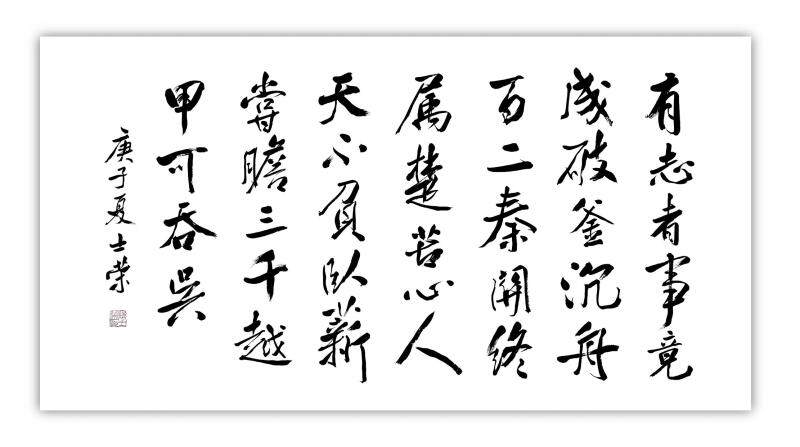 有志者事竟
成破釜沉舟
百二秦關終
属楚苦心人
天不負臥薪
嘗膽三千越
甲可吞吳
庚子夏士荣